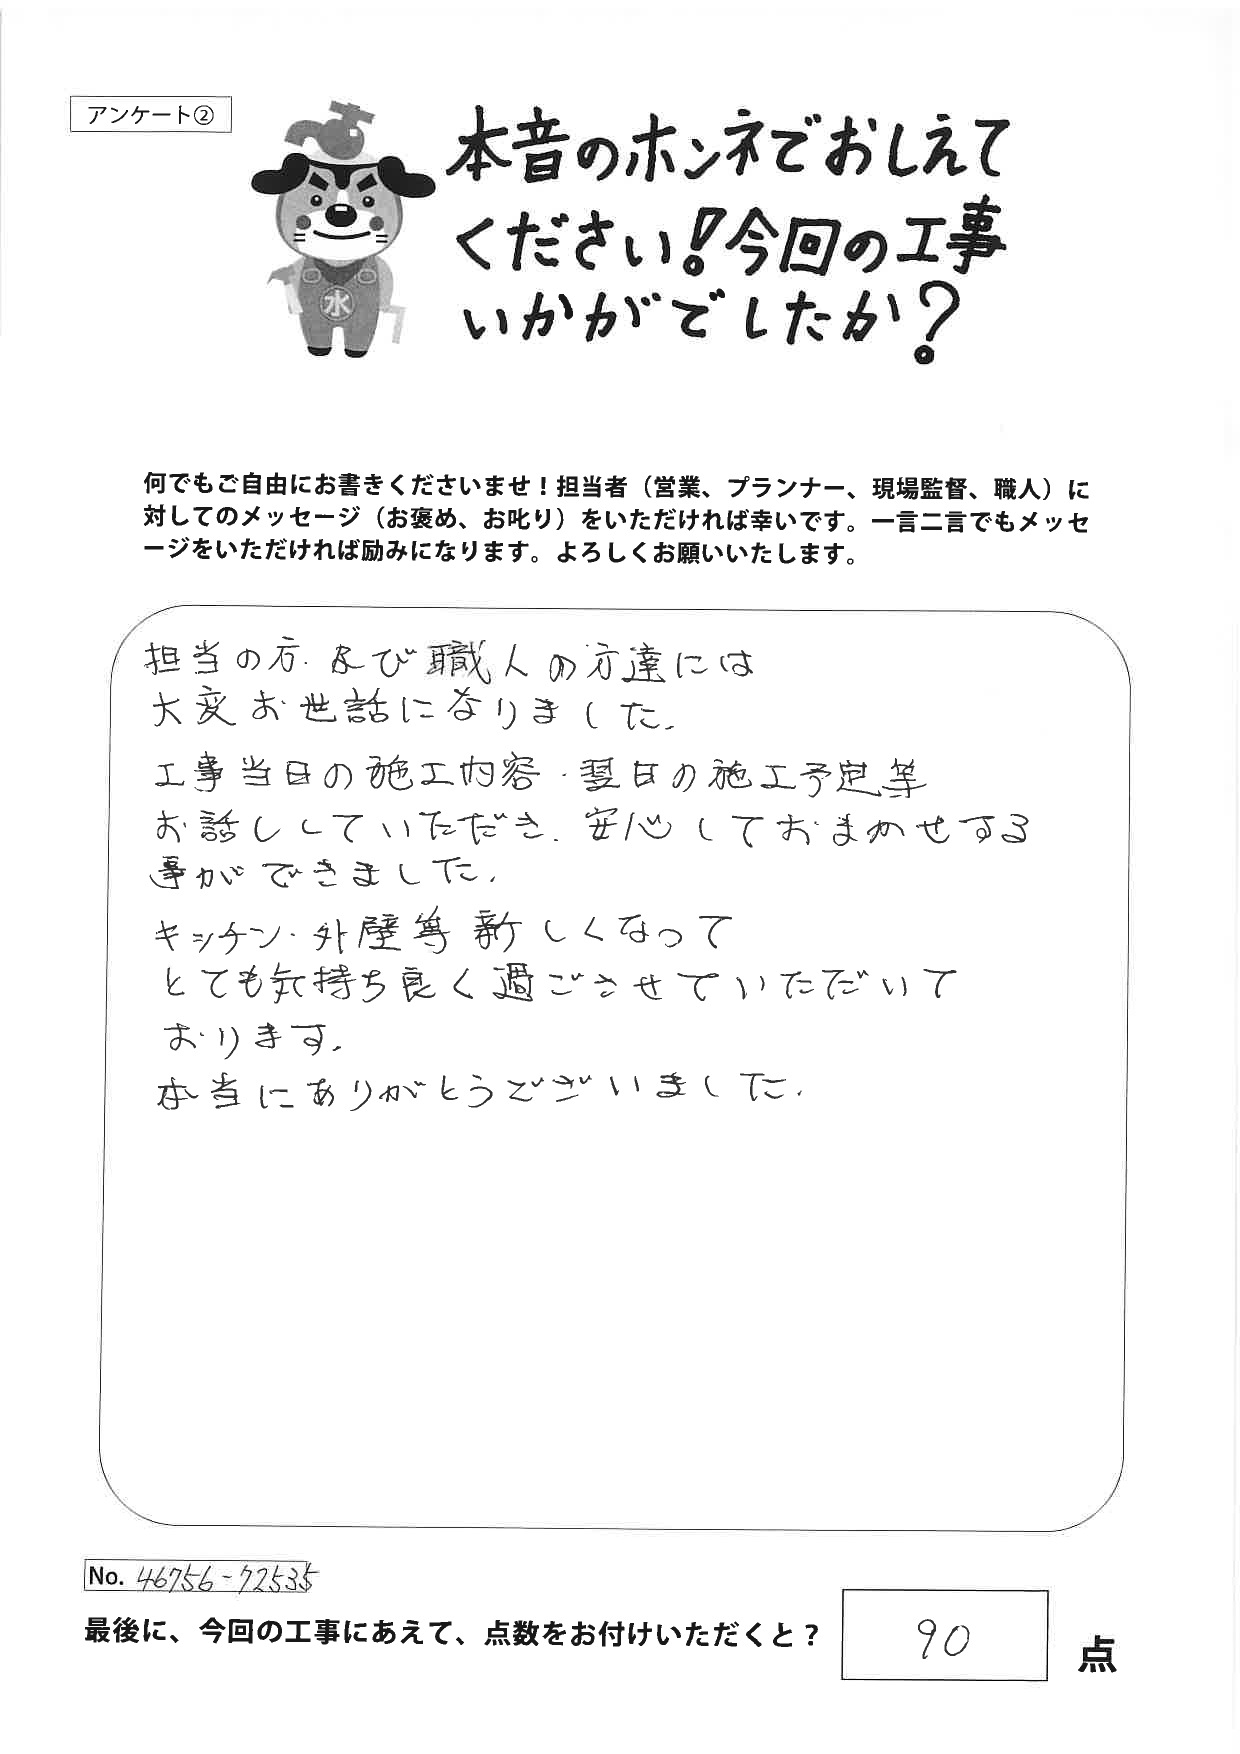 アンケート②
本音のホンネでおしえて
ください!今回の工事
いかがでしたか?
水
何でもご自由にお書きくださいませ！担当者（営業、プランナー、現場監督、職人）に
対してのメッセージ（お褒め、お叱り）をいただければ幸いです。一言二言でもメッセ
ージをいただければ励みになります。よろしくお願いいたします。
担当の方.及び職人の方達には
大変お世話になりました.
工事当日の施工内容・翌日の施工予定等
お話ししていただき.安心しておまかせする
事ができました.
キッチン・外壁等新しくなって
とても気持ち良く過ごさせていただいて
おります.
本当にありがとうございました.
No. 46756-72535
最後に、今回の工事にあえて、点数をお付けいただくと？
90
点